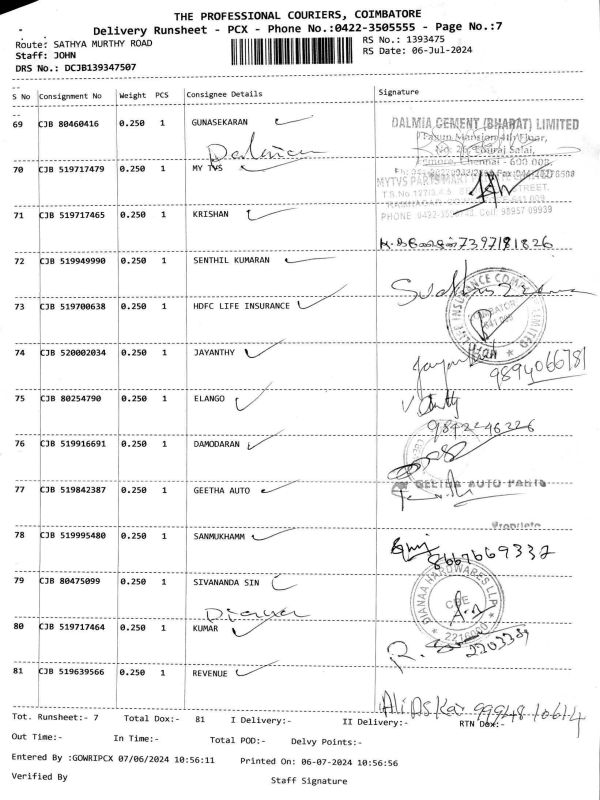 THE PROFESSIONAL COURIERS, COIMBATORE
Delivery Runsheet - PCX - Phone No.:0422-3505555 - Page No.:7
Route: SATHYA MURTHY ROAD
RS No.: 1393475
Staff: JOHN
RS Date: 06-Jul-2024
DRS No.: DCJB139347507
S No Consignment No Weight PCS Consignee Details Signature
69 CJB 80460416 0.250 1 GUNASEKARAN
DALMIA CEMENT (BHARAT) LIMITED
70 CJB 519717479 0.250 1 MY TVS
71 CJB 519717465 0.250 1 KRISHAN
7397181826
72 CJB 519949990 0.250 1 SENTHIL KUMARAN
73 CJB 519700638 0.250 1 HDFC LIFE INSURANCE
74 CJB 520002034 0.250 1 JAYANTHY
9894066781
75 CJB 80254790 0.250 1 ELANGO
9842246226
76 CJB 519916691 0.250 1 DAMODARAN
77 CJB 519842387 0.250 1 GEETHA AUTO
GEETHA AUTO PARTS
78 CJB 519995480 0.250 1 SANMUKHAMM
8667669332
79 CJB 80475099 0.250 1 SIVANANDA SIN
DIANAA HARDWARES LLP
CBE
80 CJB 519717464 0.250 1 KUMAR
81 CJB 519639566 0.250 1 REVENUE
Ali Askar 99948 10614
Tot. Runsheet:- 7 Total Dox:- 81 I Delivery:- II Delivery:- RTN Dox:-
Out Time:- In Time:- Total POD:- Delvy Points:-
Entered By :GOWRIPCX 07/06/2024 10:56:11 Printed On: 06-07-2024 10:56:56
Verified By
Staff Signature